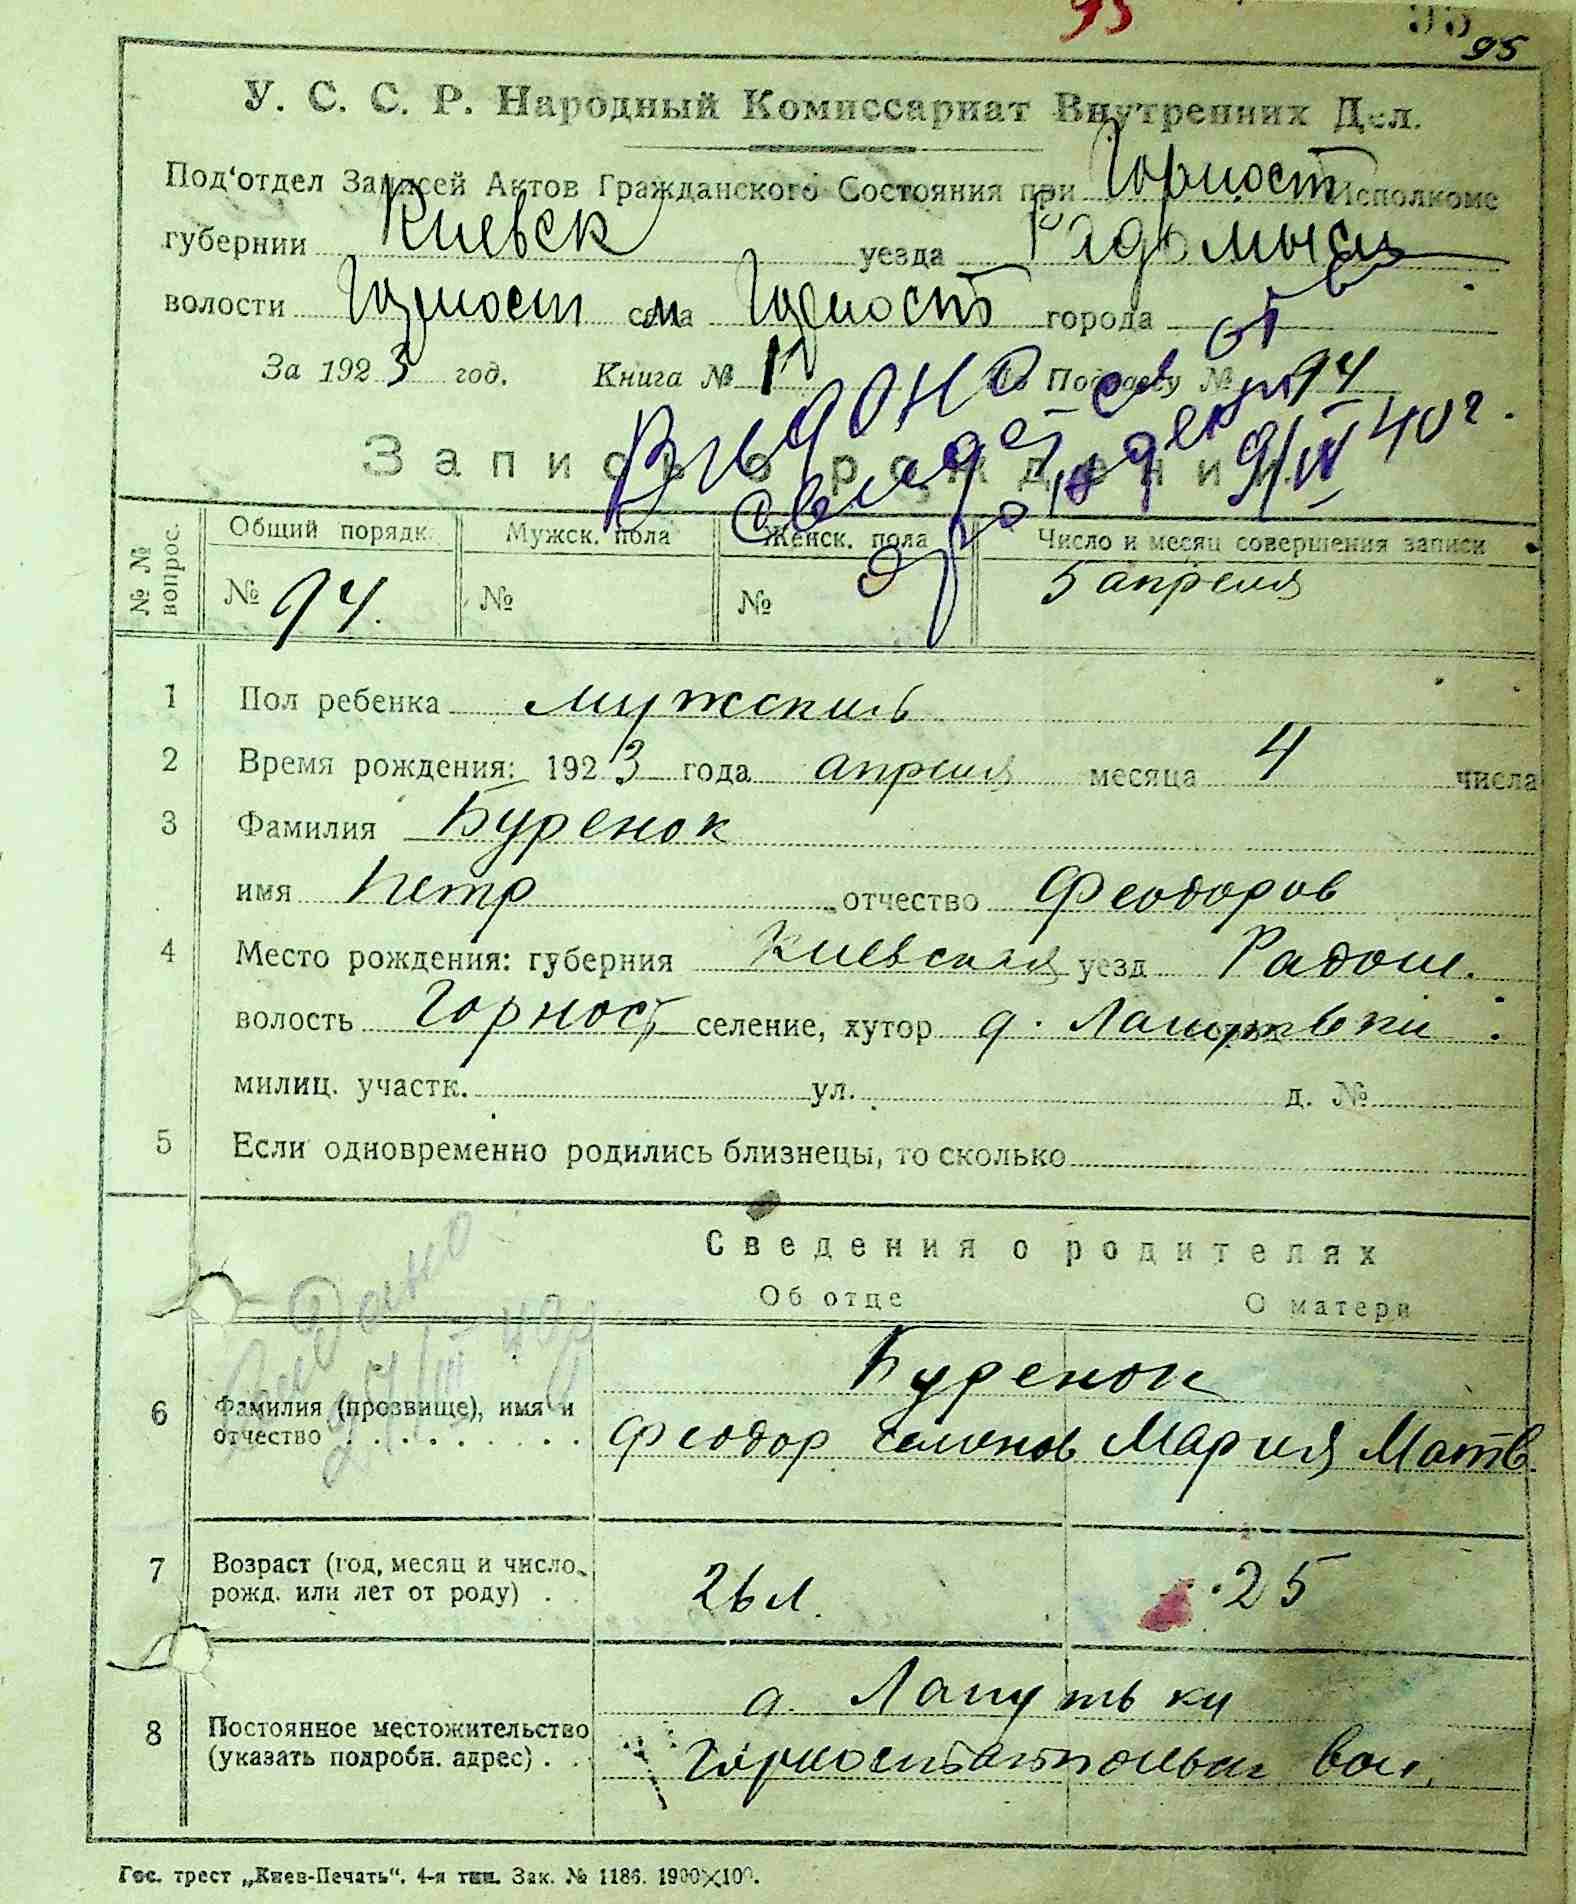 95
95
У. С. С. Р. Народный Комиссариат Внутренних Дел.
Под‘отдел Записей Актов Гражданского Состояния при Горност Исполкоме
губернии Киевск уезда Радомысл
волости Горност села Горност города
За 1923 год. Книга № 1 По Подписку № 94
Выдано
свидет
о рожден
9/IV 40 г.
Запись о рождении
№ № вопрос. Общий порядк. Мужск. пола Женск. пола Число и месяц совершения записи
№ 94. № № 5 апреля
1 Пол ребенка мужский
2 Время рождения: 1923 года апреля месяца 4 числа
3 Фамилия Буренок
имя Петр отчество Феодоров
4 Место рождения: губерния Киевская уезд Радом.
волость Горност селение, хутор д. Лапутьки
милиц. участк. ул. д. №
5 Если одновременно родились близнецы, то сколько
Сведения о родителях
Об отце О матери
Выдано
24/III 40 г
6 Фамилия (прозвище), имя и
отчество
Буренок
Феодор Семенов Мария Матв.
7 Возраст (год, месяц и число
рожд. или лет от роду) . .
26 л. 25
8 Постоянное местожительство
(указать подробн. адрес) . .
д. Лапутьки
Горностайпольск вол.
Гос. трест „Киев-Печать“. 4-я тип. Зак. № 1186. 1900×100.